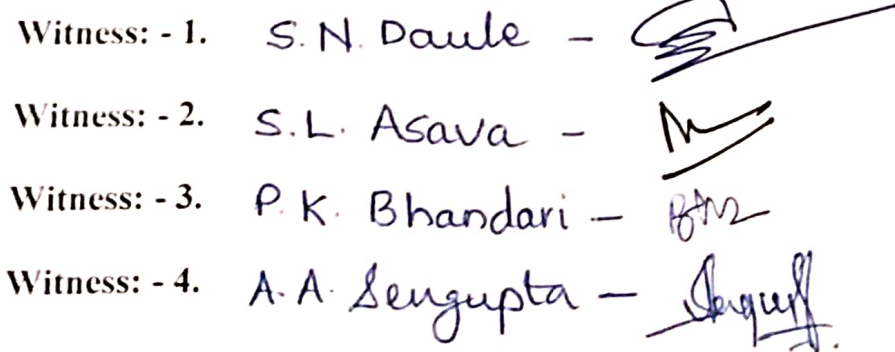 Witness: - 1. S. N. Daule -
Witness: - 2. S.L. Asava -
Witness: - 3. P. K. Bhandari -
Witness: - 4. A. A. Sengupta -